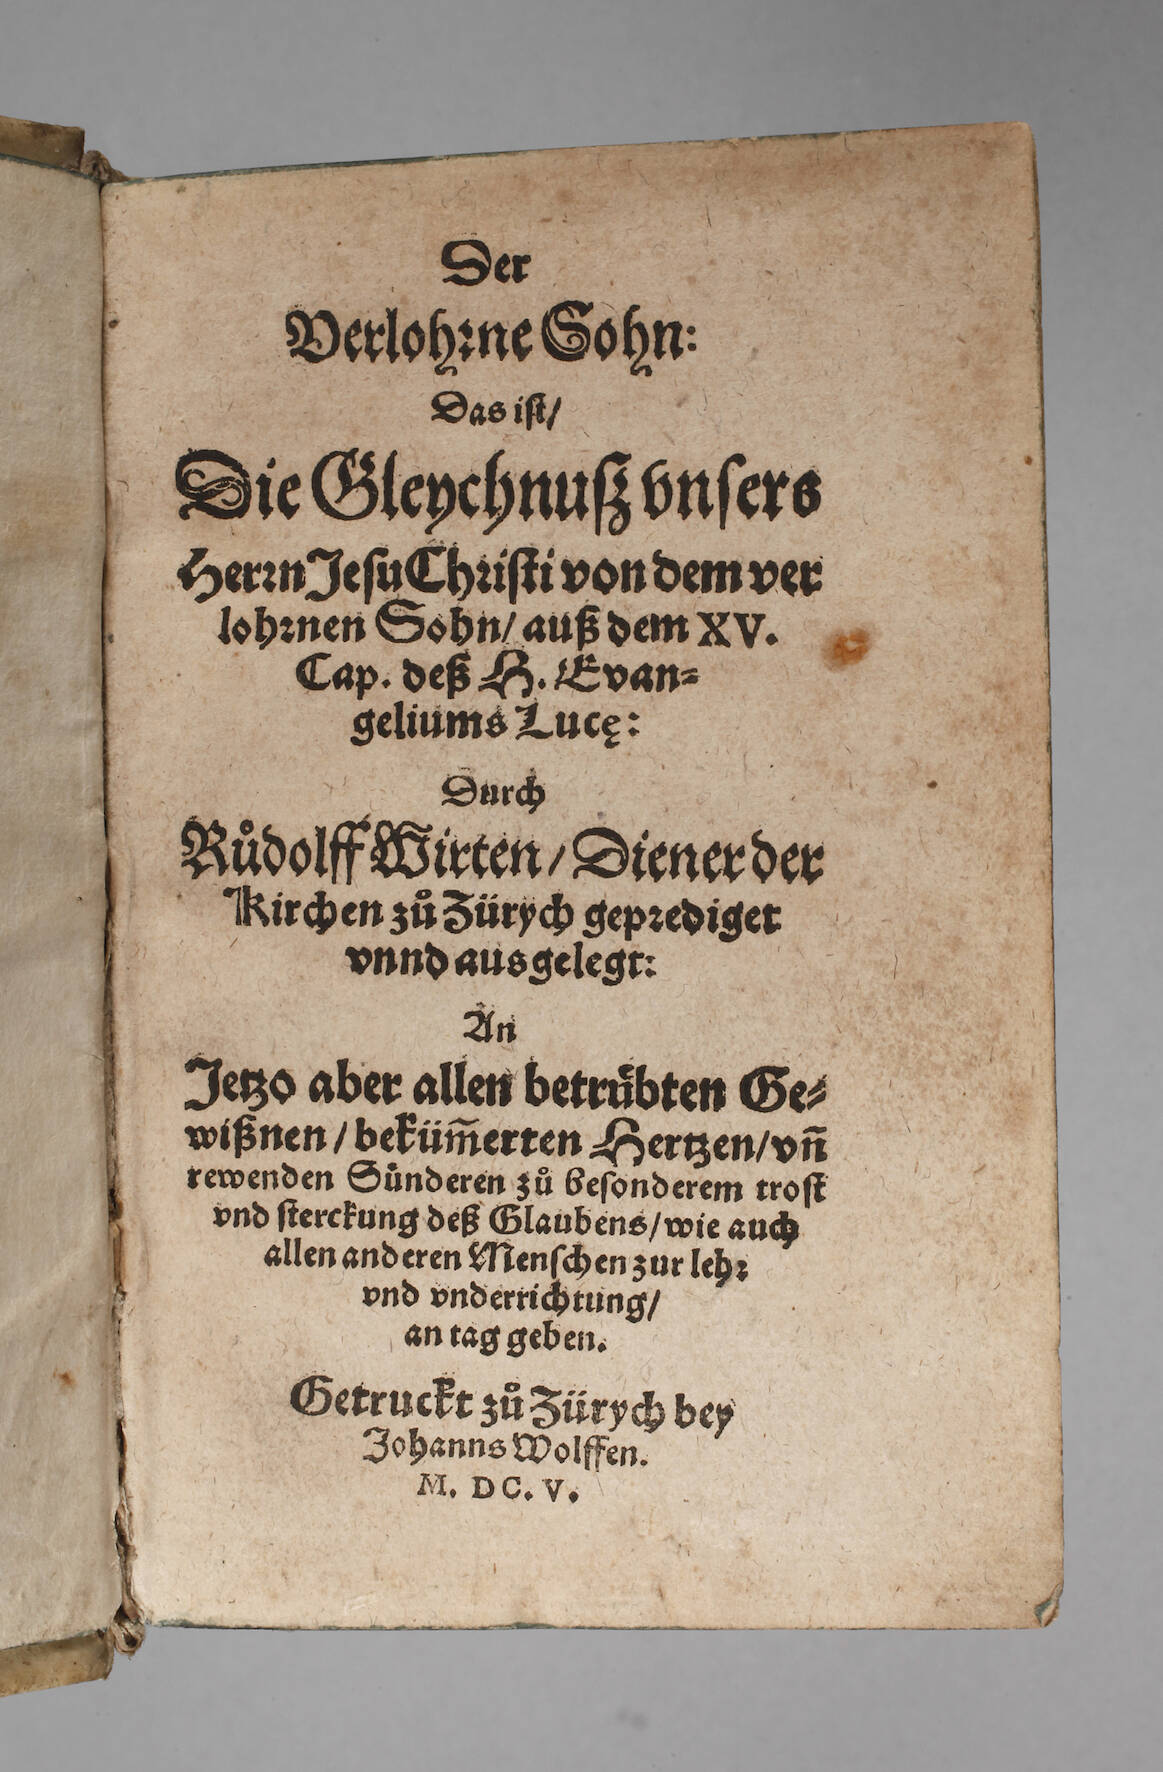 Der
Verlohrne Sohn:
Das ist/
Die Gleychnuß vnsers
Herrn Jesu Christi von dem ver
lohrnen Sohn/ auß dem XV.
Cap. deß H. Evan-
geliums Lucę:
Durch
Růdolff Wirten/ Diener der
Kirchen zů Zürych geprediget
vnnd ausgelegt:
An
Jetzo aber allen betruͤbten Ge-
wißnen/ bekuͤm̃erten Hertzen/ vñ
rewenden Suͤnderen zů besonderem trost
vnd sterckung deß Glaubens/ wie auch
allen anderen Menschen zur lehr
vnd vnderrichtung/
an tag geben.
Getruckt zů Zürych bey
Johanns Wolffen.
M. DC. V.